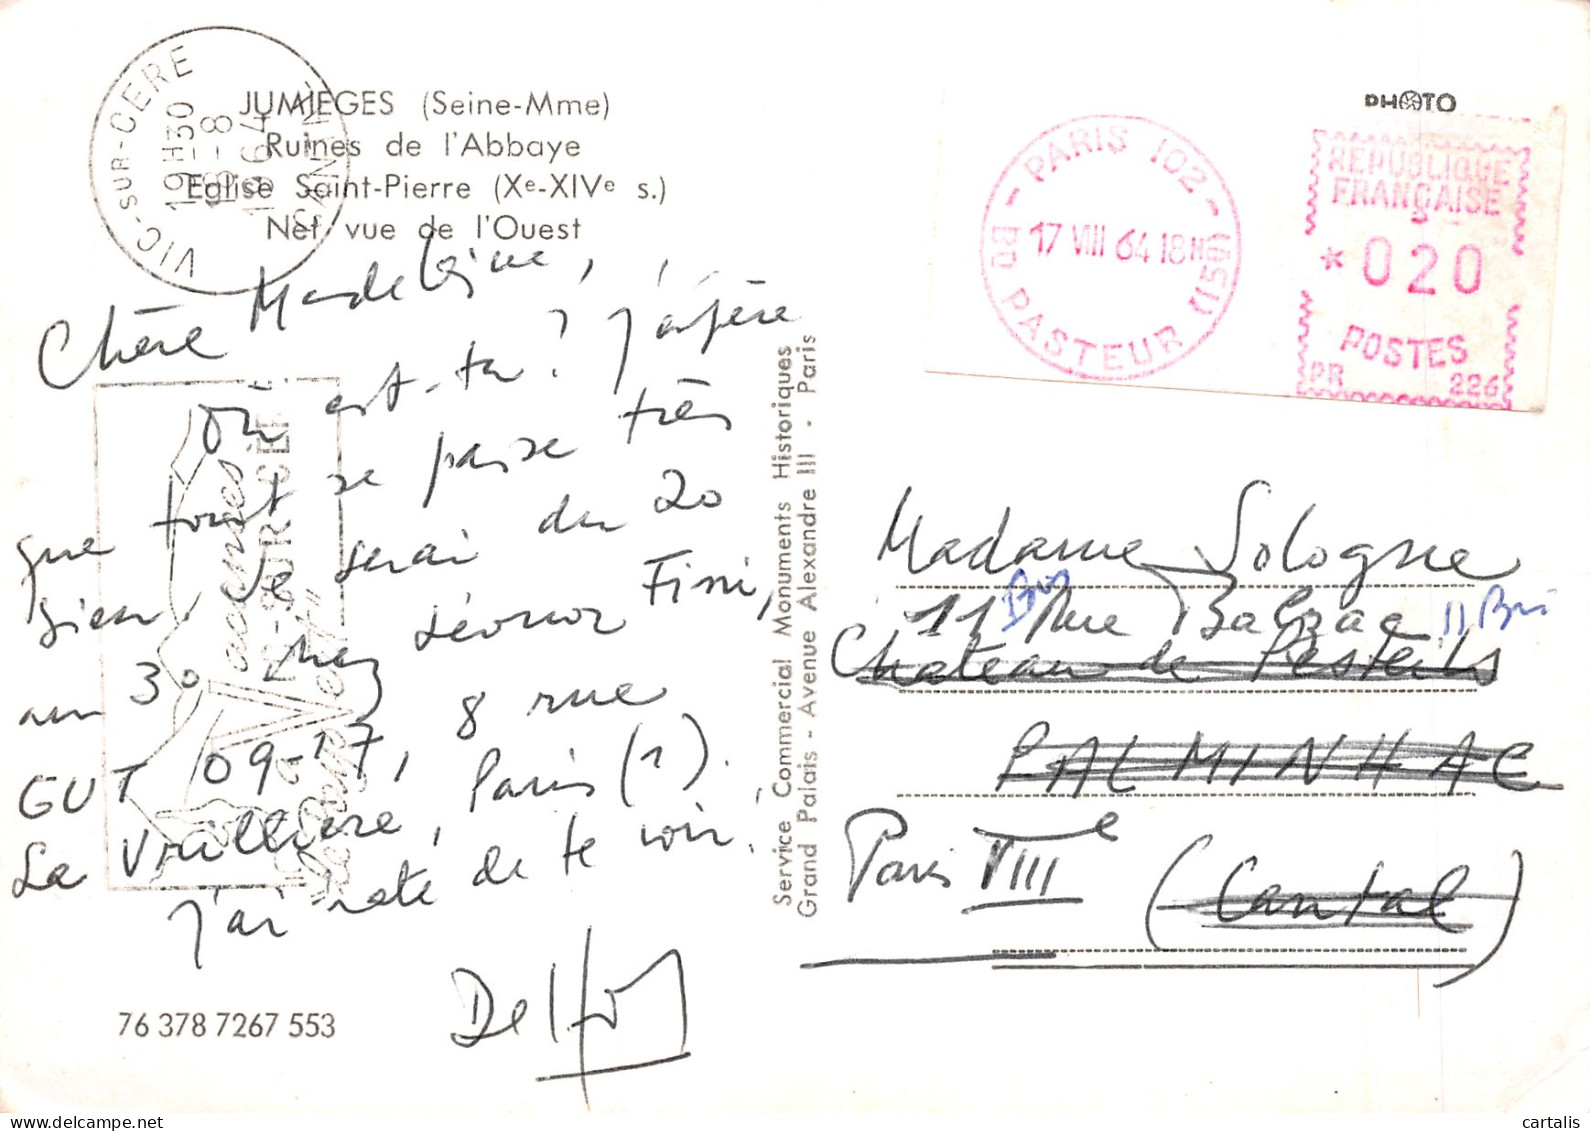 JUMIEGES (Seine-Mme)
Ruines de l'Abbaye
Eglise Saint-Pierre (Xe-XIVe s.)
Nef vue de l'Ouest
VIC-SUR-CERE
19H30
18-8
1964
CANTAL
Chère Madeleine,
Où est-tu ? j'espère
que tout se passe très
bien. Je serai du 20
au 30 chez Léonor Fini,
GUT 09-17, 8 rue
La Vrillière, Paris (1).
j'ai hâte de te voir.
76 378 7267 553
Service Commercial Monuments Historiques
Grand Palais - Avenue Alexandre III - Paris
PHOTO
PARIS 102
17 VIII 64 18H
BD PASTEUR (15e)
REPUBLIQUE
FRANÇAISE
*020
POSTES
PR 226
Madame Sologne
11 Bis Rue Balzac 11 Bis
Château de Pesteils
PALMINHAC
Paris VIIIe (Cantal)
delcampe.net
cartalis